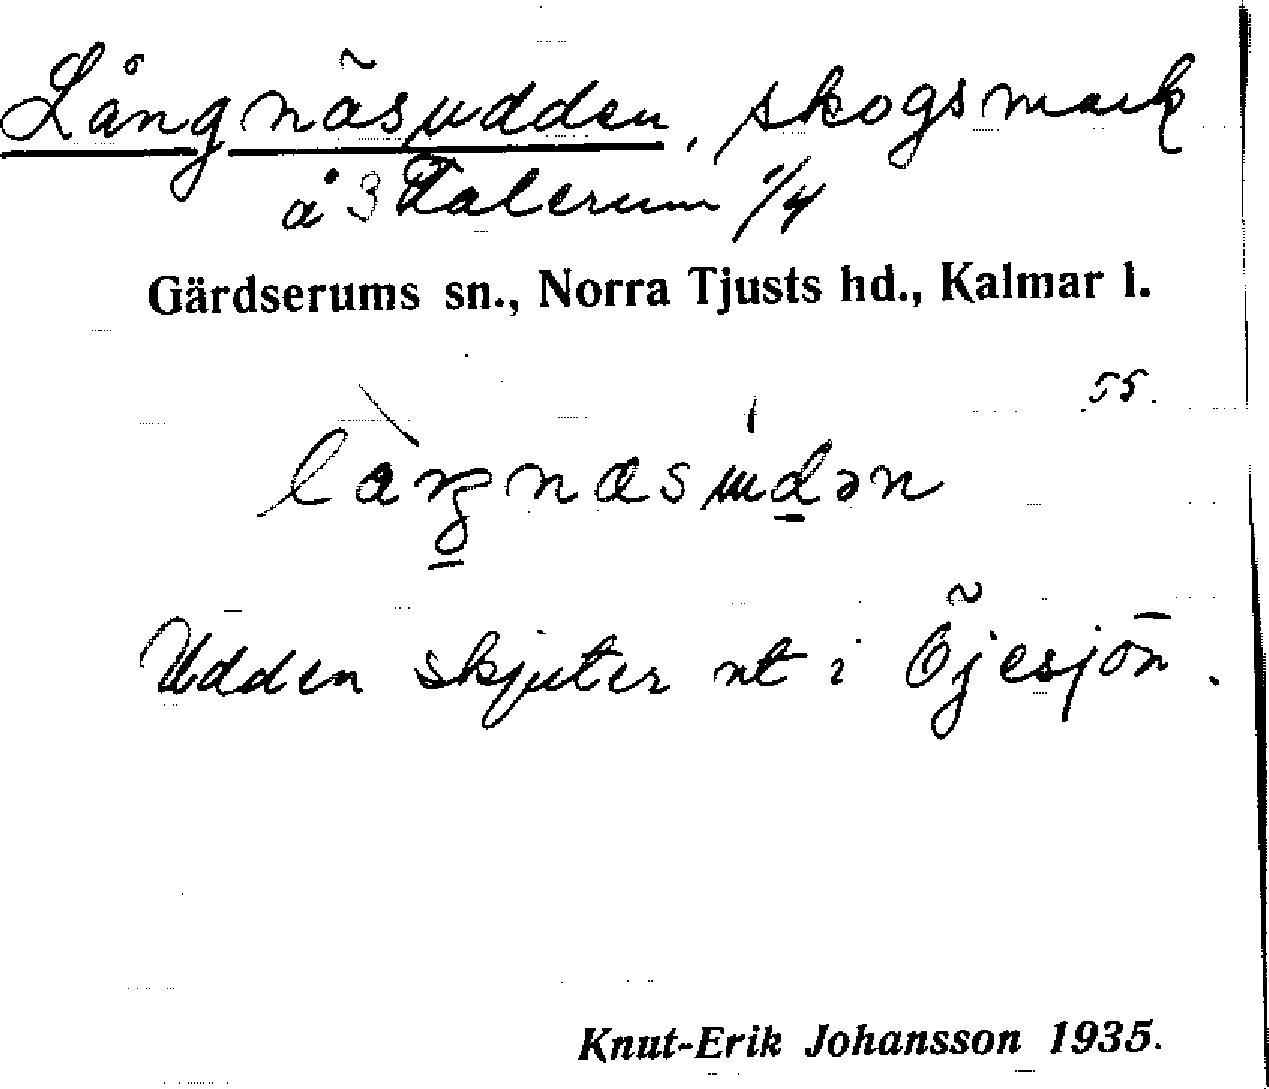 Långnäsudden, skogsmark
å 3 Falerum 1/4
Gärdserums sn., Norra Tjusts hd., Kalmar l.
55.
làŋnæsúdən
Udden skjuter ut i Öjesjön.
Knut-Erik Johansson 1935.